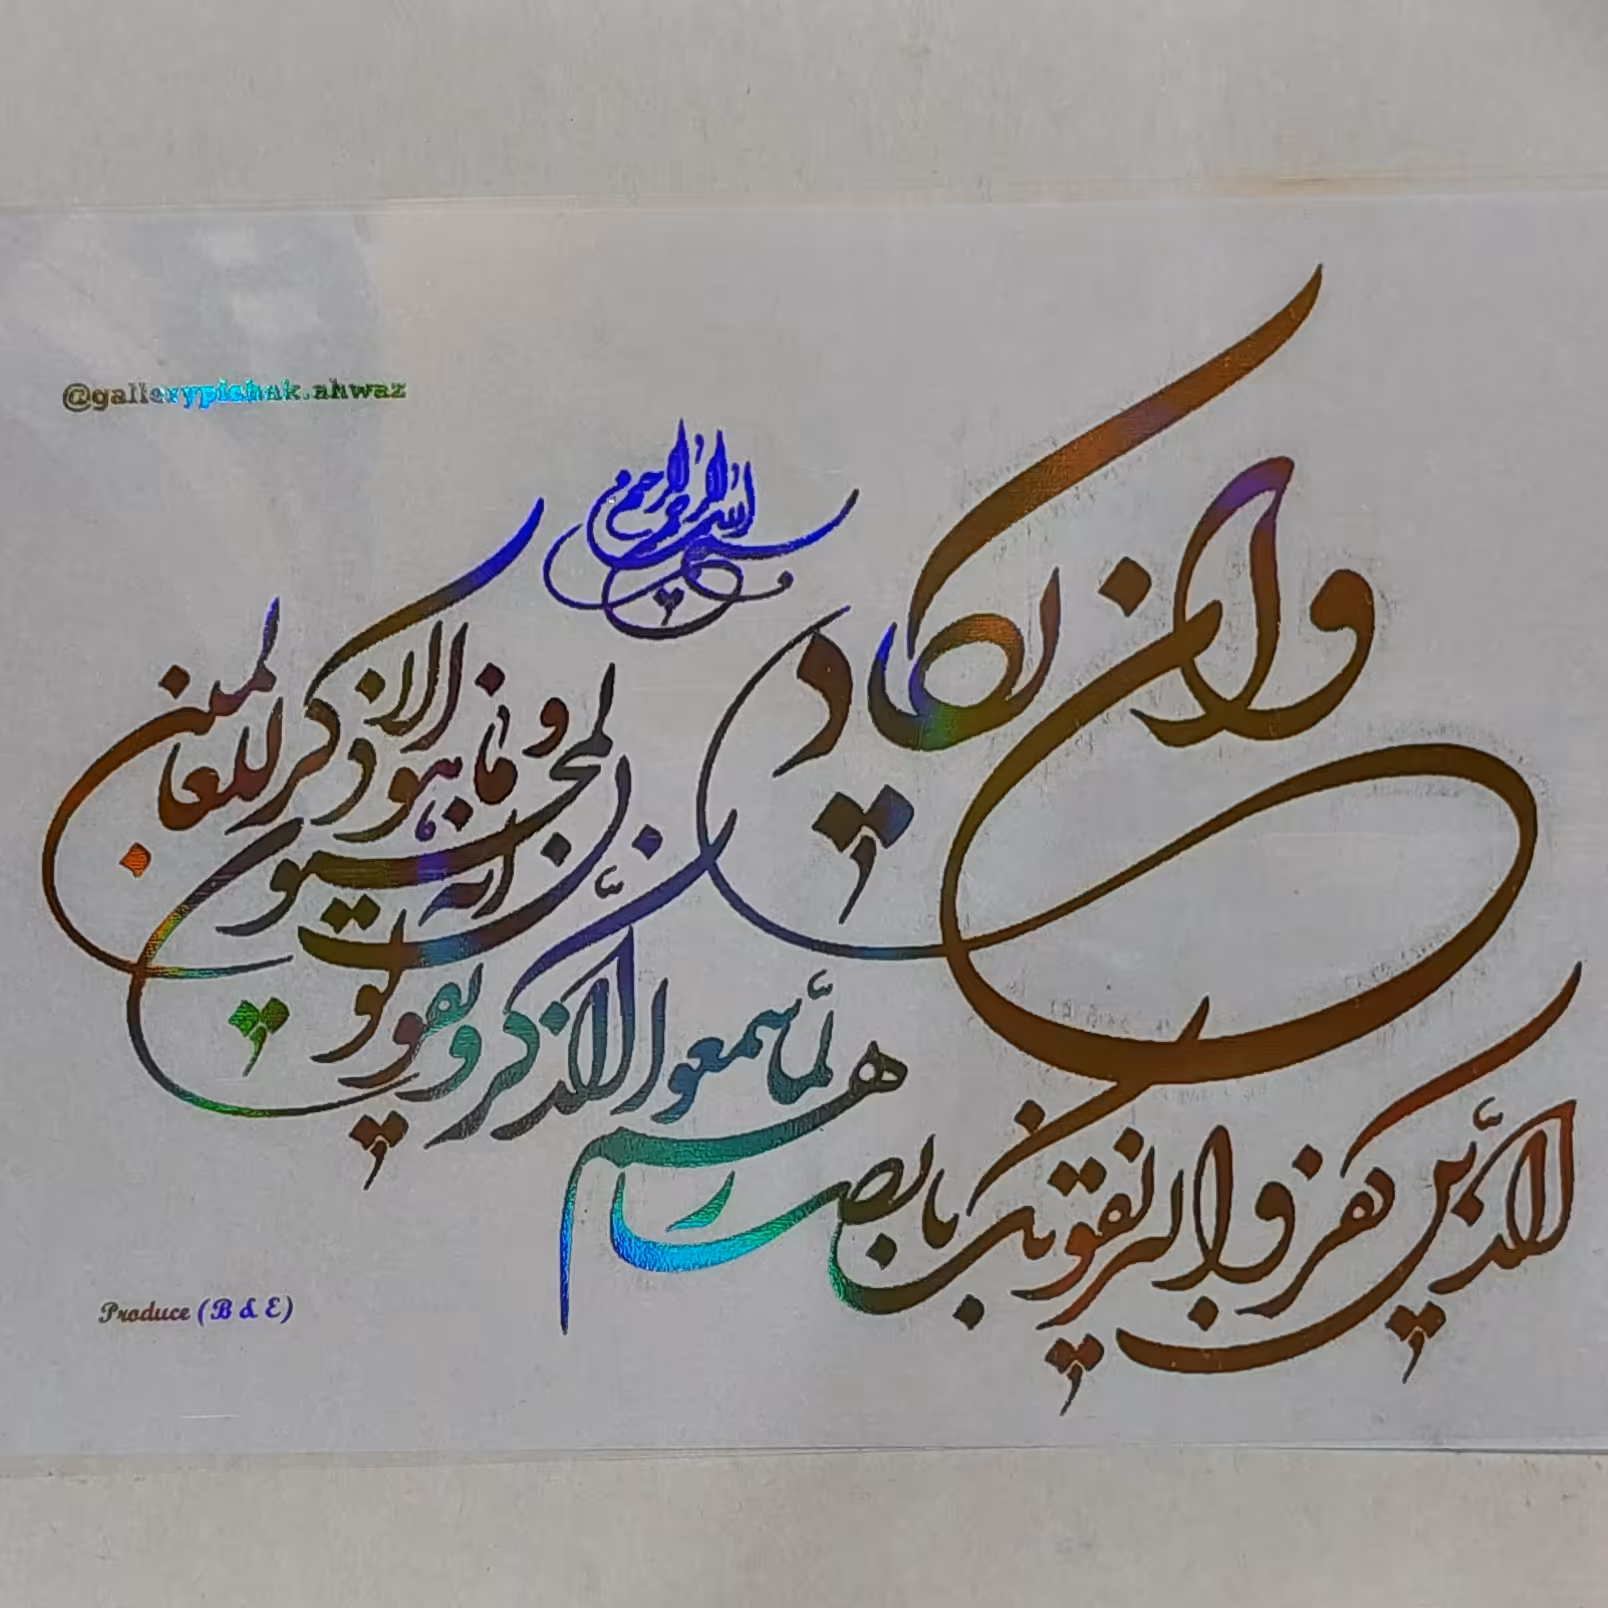 @gallerypichak.ahwaz
بسم الله الرحمن الرحیم
وان یکاد
الذین کفروا لیزلقونک بابصارهم
لما سمعوا الذکر و یقولون
انه لمجنون
و ما هو الا ذکر للعالمین
Produce (B & E)